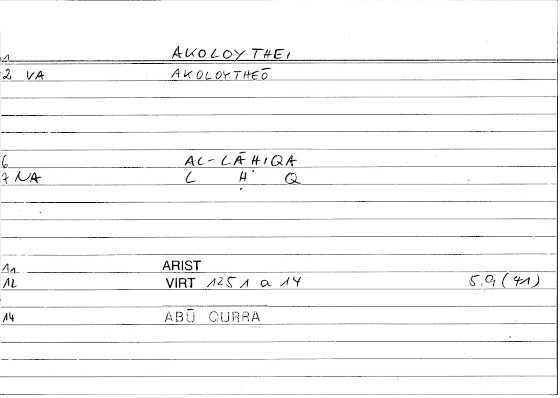 1 AKOLOYTHEI
2 VA AKOLOYTHEŌ
6 AL-LĀḤIQA
7 NA L Ḥ Q
11 ARIST
12 VIRT 1251 a 14 5,9 (41)
14 ABŪ QURRA